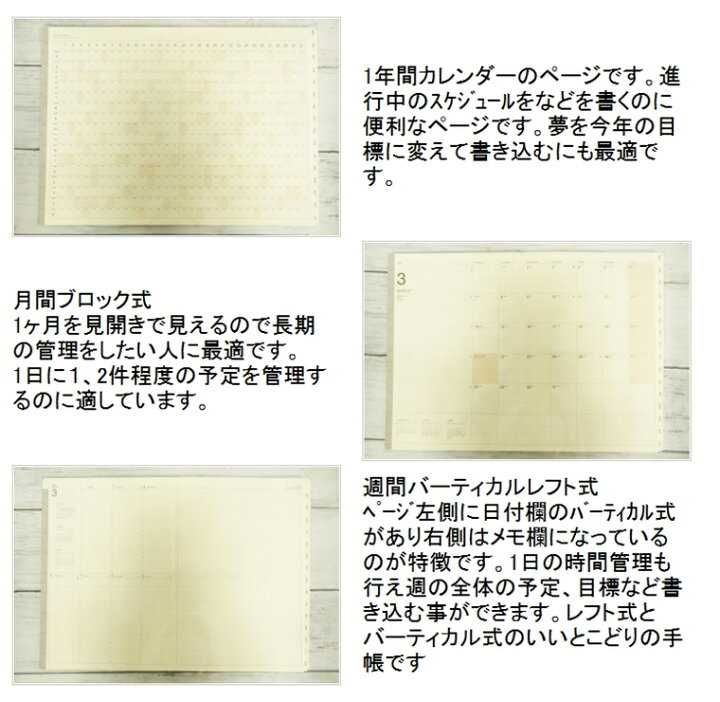 1年間カレンダーのページです。進
行中のｽｹｼﾞｭｰﾙをなどを書くのに
便利なページです。夢を今年の目
標に変えて書き込むにも最適で
す。
3
MARCH
月間ブロック式
1ヶ月を見開きで見えるので長期
の管理をしたい人に最適です。
1日に1、2件程度の予定を管理す
るのに適しています。
3
週間バーティカルレフト式
ﾍﾟｰｼﾞ左側に日付欄のﾊﾞｰﾃｨｶﾙ式
があり右側はメモ欄になっている
のが特徴です。1日の時間管理も
行え週の全体の予定、目標など書
き込む事ができます。レフト式と
バーティカル式のいいとこどりの手
帳です